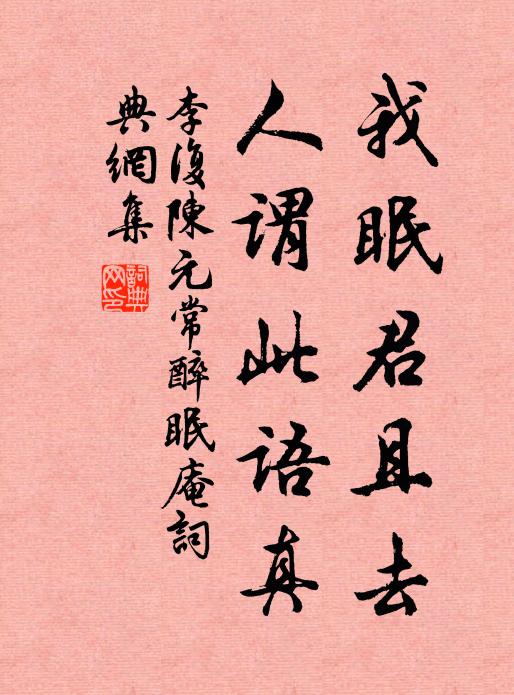 我眠君且去
人謂此語真
李復陳元常醉眠庵詞
典網集
詞典網印